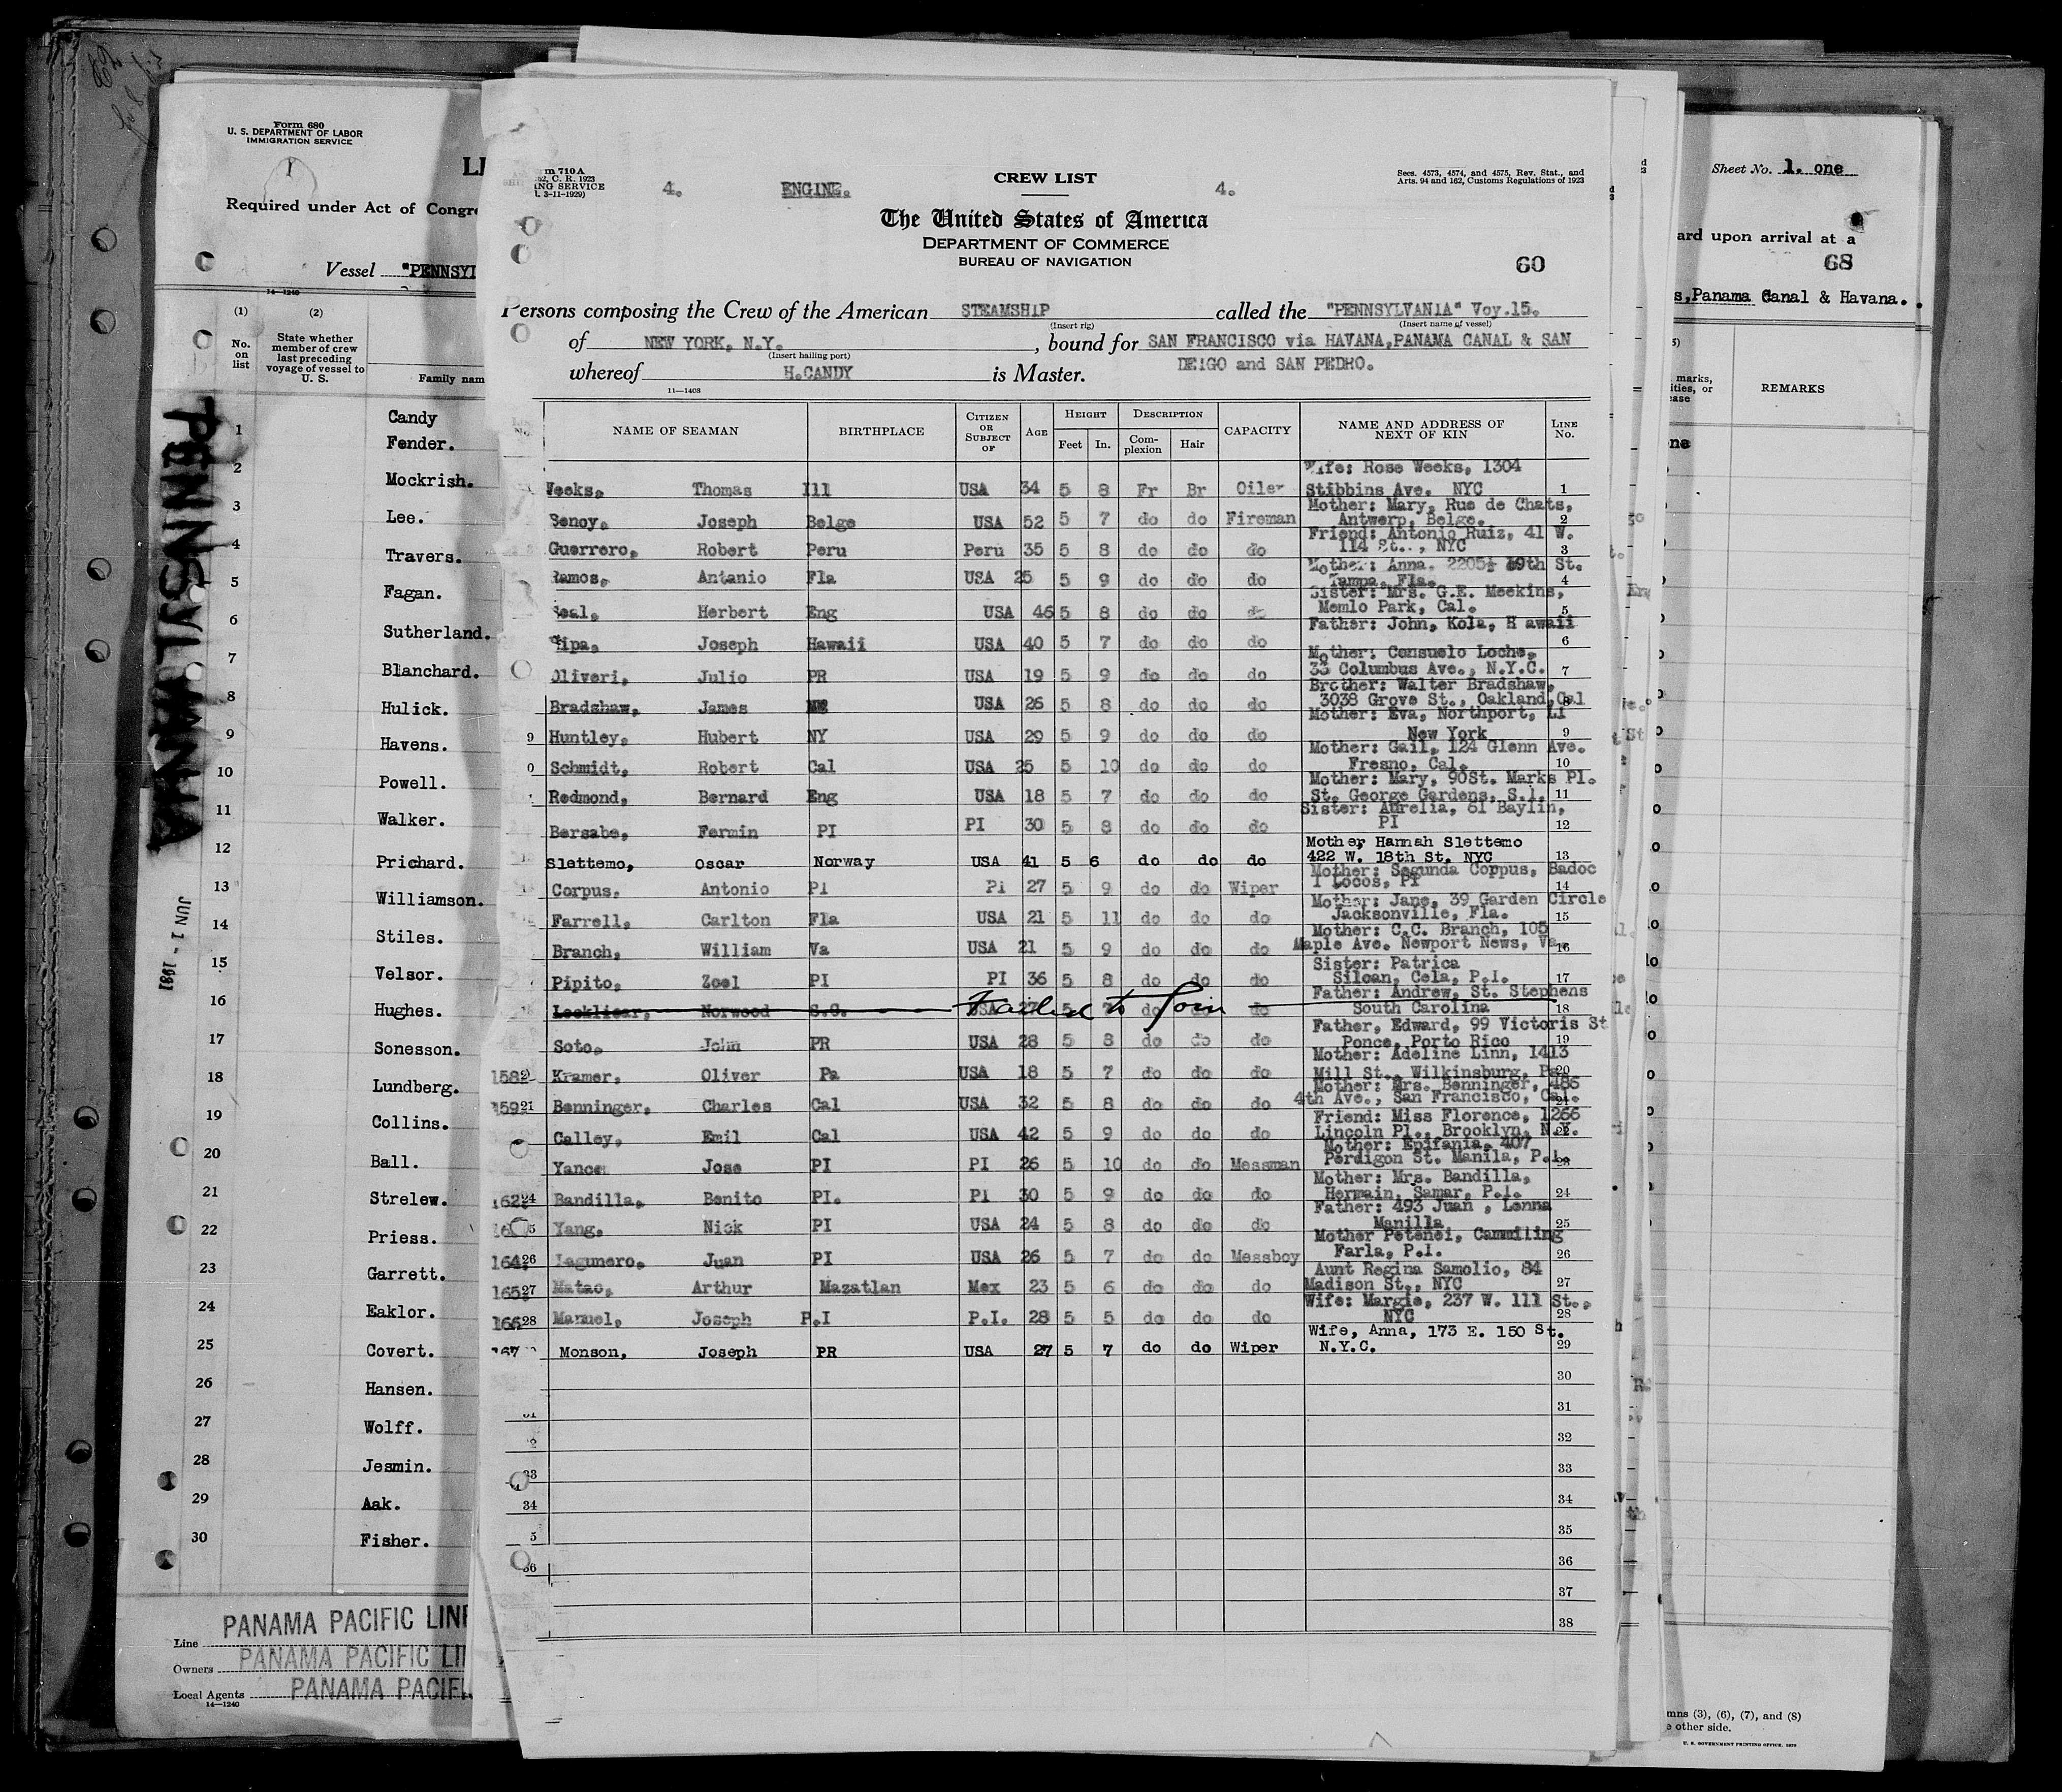 Form 680
U. S. DEPARTMENT OF LABOR
IMMIGRATION SERVICE
Required under Act of Congre
Vessel "PENNSYL
14—1240
(1) (2)
No. on list
State whether member of crew last preceding voyage of vessel to U. S.
Family nam
PENNSYLVANIA
JUN 1 - 1931
Candy
1 Fender.
2 Mockrish.
3 Lee.
4 Travers.
5 Fagan.
6 Sutherland.
7 Blanchard.
8 Hulick.
9 Havens.
10 Powell.
11 Walker.
12 Prichard.
13 Williamson.
14 Stiles.
15 Velsor.
16 Hughes.
17 Sonesson.
18 Lundberg.
19 Collins.
20 Ball.
21 Strelew.
22 Priess.
23 Garrett.
24 Eaklor.
25 Covert.
26 Hansen.
27 Wolff.
28 Jesmin.
29 Aak.
30 Fisher.
PANAMA PACIFIC LINE
Line
Owners PANAMA PACIFIC LI
Local Agents PANAMA PACIFI
14—1240
m 710 A
C. R. 1923
NG SERVICE
3-11-1929)
4. ENGINE. CREW LIST 4.
Secs. 4573, 4574, and 4575, Rev. Stat., and
Arts. 94 and 162, Customs Regulations of 1923
The United States of America
DEPARTMENT OF COMMERCE
BUREAU OF NAVIGATION
60
Persons composing the Crew of the American STEAMSHIP called the "PENNSYLVANIA" Voy.15.
(Insert rig) (Insert name of vessel)
of NEW YORK, N.Y. , bound for SAN FRANCISCO via HAVANA,PANAMA CANAL & SAN
(Insert hailing port)
DEIGO and SAN PEDRO.
whereof H.CANDY is Master.
11—1408
NAME OF SEAMAN BIRTHPLACE CITIZEN OR SUBJECT OF AGE HEIGHT Feet In. DESCRIPTION Complexion Hair CAPACITY NAME AND ADDRESS OF NEXT OF KIN LINE No.
Wife: Rose Weeks, 1304
Weeks, Thomas Ill USA 34 5 8 Fr Br Oiler Stibbins Ave. NYC 1
Mother: Mary, Rue de Chats,
Benoy, Joseph Belge USA 52 5 7 do do Fireman Antwerp, Belge. 2
Friend: Antonio Ruiz, 41 W.
Guerrero, Robert Peru Peru 35 5 8 do do do 114 St., NYC 3
Mother: Anna, 2205½ 19th St.
Ramos, Antanio Fla USA 25 5 9 do do do Tampa, Fla. 4
Sister: Mrs. G.E. Meekins,
eal, Herbert Eng USA 46 5 8 do do do Memlo Park, Cal. 5
Father: John, Kola, H awaii
ipa, Joseph Hawaii USA 40 5 7 do do do 6
Mother: Consuelo Loche,
Oliveri, Julio PR USA 19 5 9 do do do 33 Columbus Ave., N.Y.C. 7
Brother: Walter Bradshaw,
Bradshaw, James USA 26 5 8 do do do 3038 Grove St., Oakland,Cal 8
Mother: Eva, Northport, LI
9 Huntley, Hubert NY USA 29 5 9 do do do New York 9
Mother: Gail, 124 Glenn Ave.
0 Schmidt, Robert Cal USA 25 5 10 do do do Fresno, Cal. 10
Mother: Mary, 90St. Marks Pl.
Redmond, Bernard Eng USA 18 5 7 do do do St. George Gardens, S.I. 11
Sister: Aurelia, 61 Baylin,
Bersabe, Fermin PI PI 30 5 8 do do do PI 12
Mother Hannah Slettemo
Slettemo, Oscar Norway USA 41 5 6 do do do 422 W. 18th St. NYC 13
Mother: Segunda Corpus, Badoc
Corpus, Antonio PI PI 27 5 9 do do Wiper I Locos, PI 14
Mother: Jane, 39 Garden Circle
Farrell, Carlton Fla USA 21 5 11 do do do Jacksonville, Fla. 15
Mother: C.C. Branch, 105
Branch, William Va USA 21 5 9 do do do Maple Ave. Newport News, Va. 16
Sister: Patrica
Pipito, Zoel PI PI 36 5 8 do do do Siloan, Cela, P.I. 17
Father: Andrew, St. Stephens
Norwood S.C. USA Failed to Join do South Carolina 18
Father, Edward, 99 Victoris St
Soto, John PR USA 28 5 8 do do do Ponce, Porto Rico 19
Mother: Adeline Linn, 1413
158 Kramer, Oliver Pa USA 18 5 7 do do do Mill St., Wilkinsburg, Pa. 20
Mother: Mrs. Benninger, 486
159 21 Benninger, Charles Cal USA 32 5 8 do do do 4th Ave., San Francisco, Cal. 21
Friend: Miss Florence, 1266
Calley, Emil Cal USA 42 5 9 do do do Lincoln Pl., Brooklyn, N.Y. 22
Mother: Epifania, 407
Yance Jose PI PI 26 5 10 do do Messman Perdigon St. Manila, P.I. 23
Mother: Mrs. Bandilla,
162 24 Bandilla, Benito PI. PI 30 5 9 do do do Hermain, Samar, P.I. 24
Father: 493 Juan , Lenna
Yang, Nick PI USA 24 5 8 do do do Manilla 25
Mother Petenei, Cammiling
164 26 Lagunero, Juan PI USA 26 5 7 do do Messboy Farla, P.I. 26
Aunt Regina Samolio, 84
165 27 Matao, Arthur Mazatlan Mex 23 5 6 do do do Madison St., NYC 27
Wife: Margie, 237 W. 111 St.,
166 28 Manuel, Joseph P.I P.I. 28 5 5 do do do NYC 28
Wife, Anna, 173 E. 150 St.
167 Monson, Joseph PR USA 27 5 7 do do Wiper N.Y.C. 29
30
31 31
32
33 33
34 34
5 35
36 36
37
38
Sheet No. 1. one
ard upon arrival at a
68
s,Panama Canal & Havana.
marks,
ities, or
ease
REMARKS
mns (3), (6), (7), and (8)
e other side.
U. S. GOVERNMENT PRINTING OFFICE